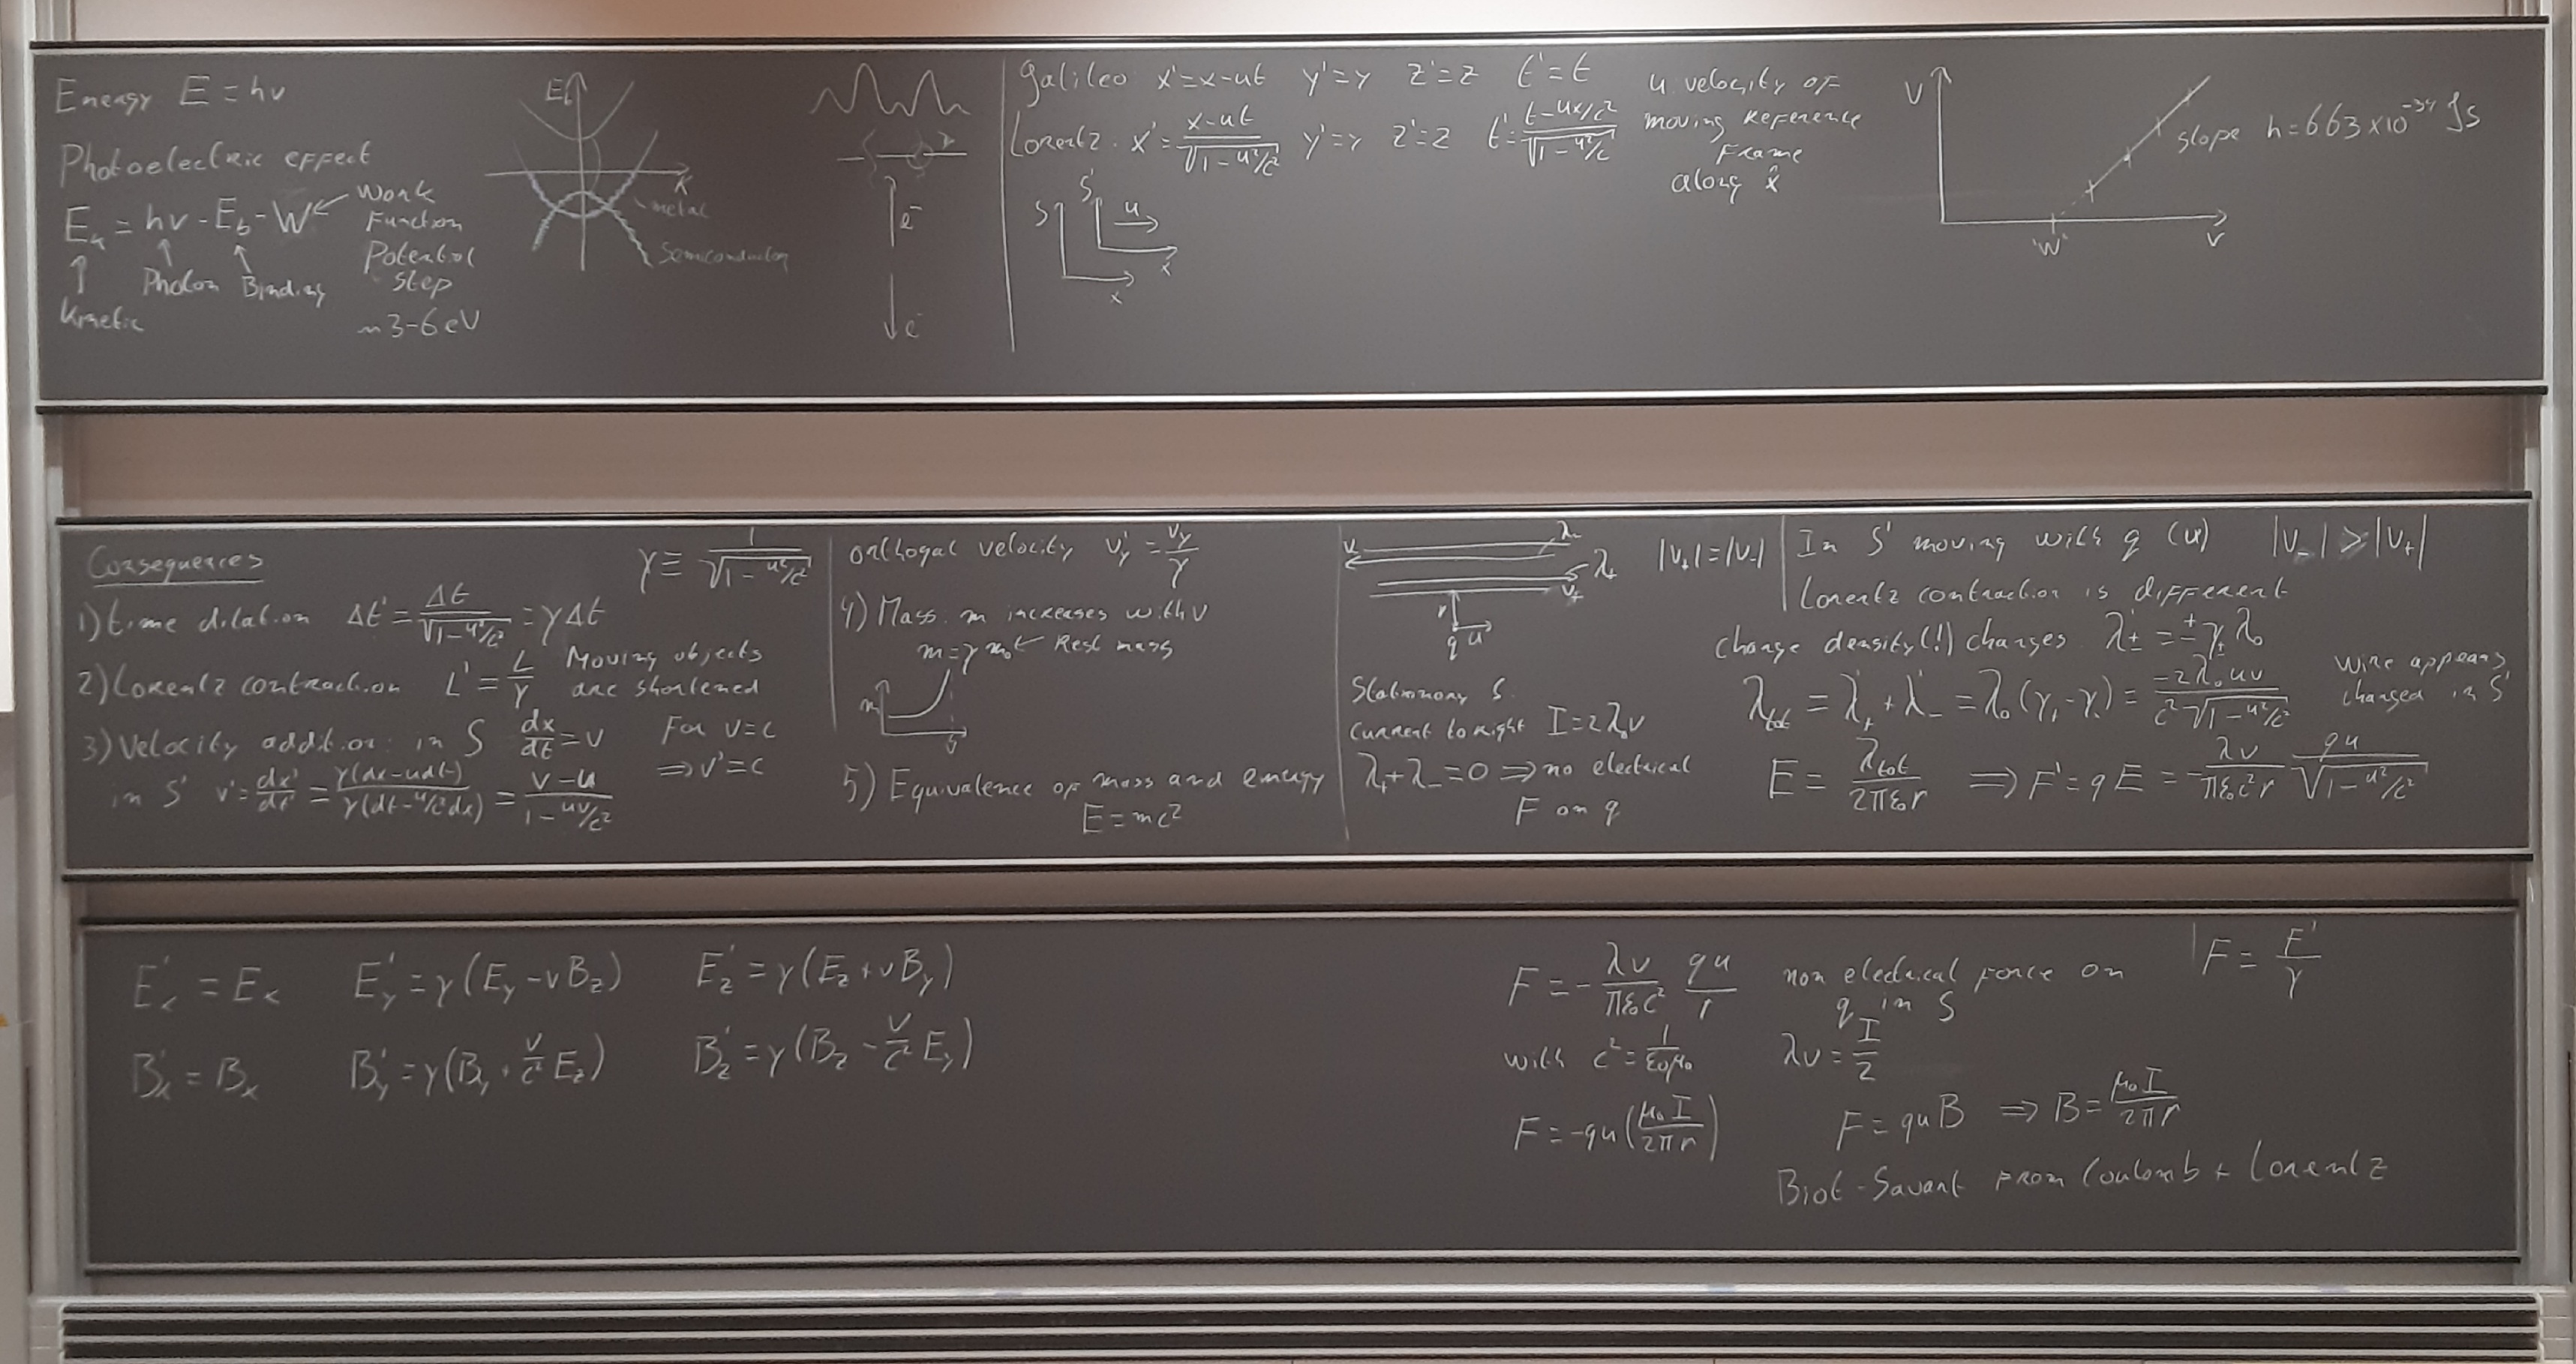 Energy E = hν
Photoelectric effect
E_k = hν - E_b - W
Work
Function
Potential
step
~3-6 eV
Kinetic
Photon
Binding
E_b
K
metal
Semiconductor
e⁻
e⁻
Galileo x'=x-ut y'=y z'=z t'=t
Lorentz. x'=(x-ut)/√(1-u²/c²) y'=y z'=z t'=(t-ux/c²)/√(1-u²/c²)
u velocity of
moving Reference
Frame
along x̂
S
S'
u
x
x
V
slope h=663×10⁻³⁴ Js
'W'
ν
Consequences
γ ≡ 1/√(1-u²/c²)
1) time dilation Δt' = Δt/√(1-u²/c²) = γΔt
2) Lorentz contraction L' = L/γ Moving objects
are shortened
3) Velocity addition: in S dx/dt = v
in S' v' = dx'/dt' = γ(dx-udt)/γ(dt-u/c²dx) = (v-u)/(1-uv/c²)
For v=c
⇒ v'=c
orthogal velocity v'_y = v_y/γ
4) Mass. m increases with v
m=γm₀ ← Rest mass
m
v
5) Equivalence of mass and energy
E=mc²
v₋
λ₋
λ₊
v₊
|v₊|=|v₋|
r
q u
Stationary S.
Current to right I=2λ₀v
λ₊+λ₋=0 ⇒ no electrical
F on q
In S' moving with q (u) |v₋| > |v₊|
Lorentz contraction is different
charge density(!) changes. λ'± = ±γ±λ₀
λ'tot = λ'₊ + λ'₋ = λ₀(γ₊-γ₋) = -2λ₀uv/(c²√(1-u²/c²))
Wire appears
charged in S'
E = λtot/(2πε₀r) ⇒ F' = qE = -λv/(πε₀c²r) qu/√(1-u²/c²)
E'_x = E_x E'_y = γ(E_y - vB_z) E'_z = γ(E_z + vB_y)
B'_x = B_x B'_y = γ(B_y + v/c² E_z) B'_z = γ(B_z - v/c² E_y)
F = -λv/(πε₀c²) qu/r non electrical force on
q in S
F = F'/γ
with c² = 1/(ε₀μ₀) λv = I/2
F = -qu(μ₀I/(2πr)) F = quB ⇒ B = μ₀I/(2πr)
Biot-Savart From Coulomb + Lorentz